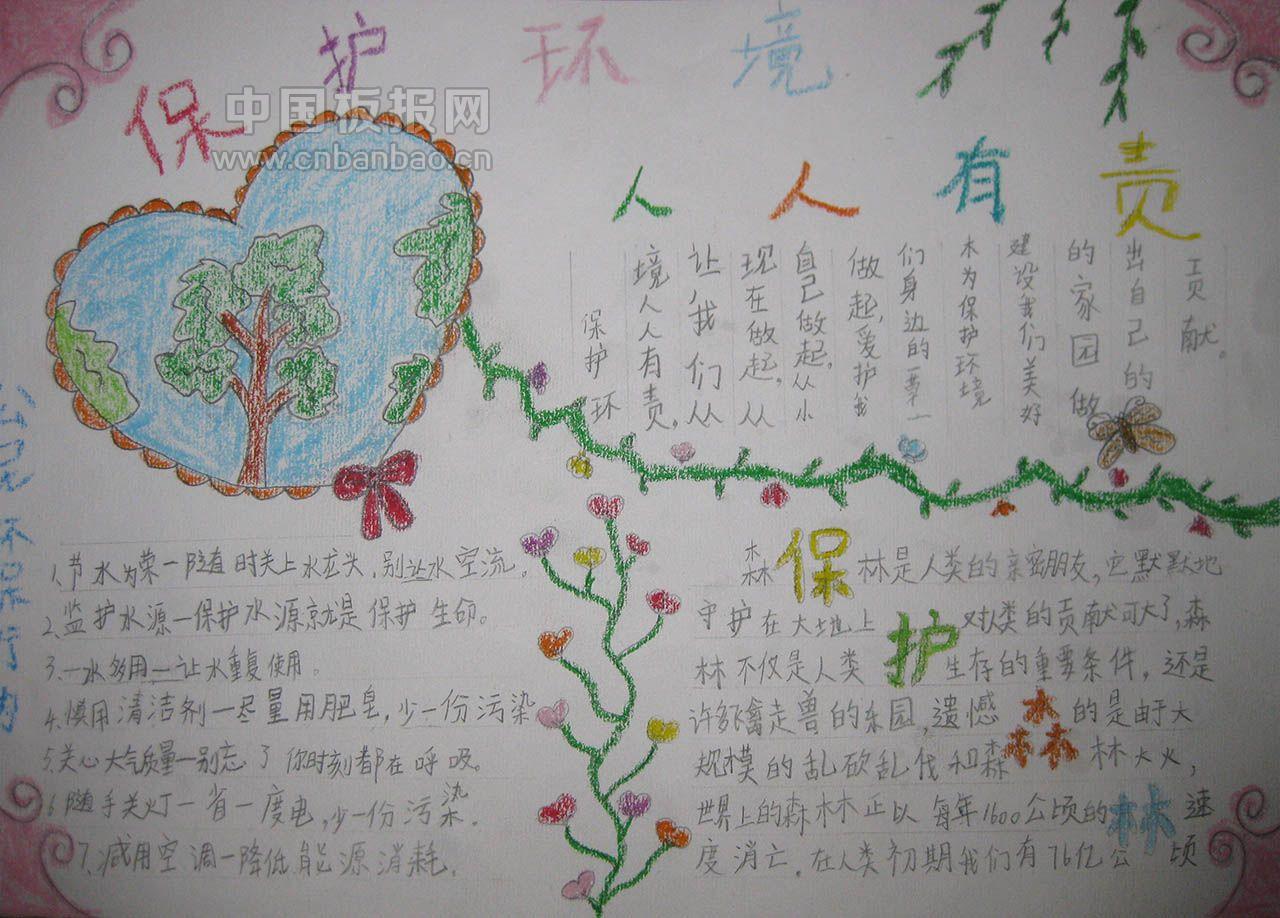 保护环境
人人有责
中国板报网
www.cnbanbao.cn
保护环
境人人有责,
让我们从
现在做起,从
自己做起,从小
做起,爱护我
们身边的一草一
木为保护环境
建设我们美好
的家园做
出自己的
贡献。
公民环保行为
1、节水为荣一随时关上水龙头,别让水空流。
2.监护水源一保护水源就是保护生命。
3、一水多用一让水重复使用。
4、慎用清洁剂一尽量用肥皂,少一份污染
5、关心大气质量一别忘了你时刻都在呼吸。
6随手关灯一省一度电,少一份污染.
7、减用空调一降低能源消耗.
保护森林
森林是人类的亲密朋友,它默默地
守护在大地上对人类的贡献可大了,森
林不仅是人类生存的重要条件,还是
许多飞禽走兽的乐园,遗憾的是由于大
规模的乱砍乱伐和森林大火,
世界上的森林正以每年1600公顷的速
度消亡.在人类初期我们有76亿公顷